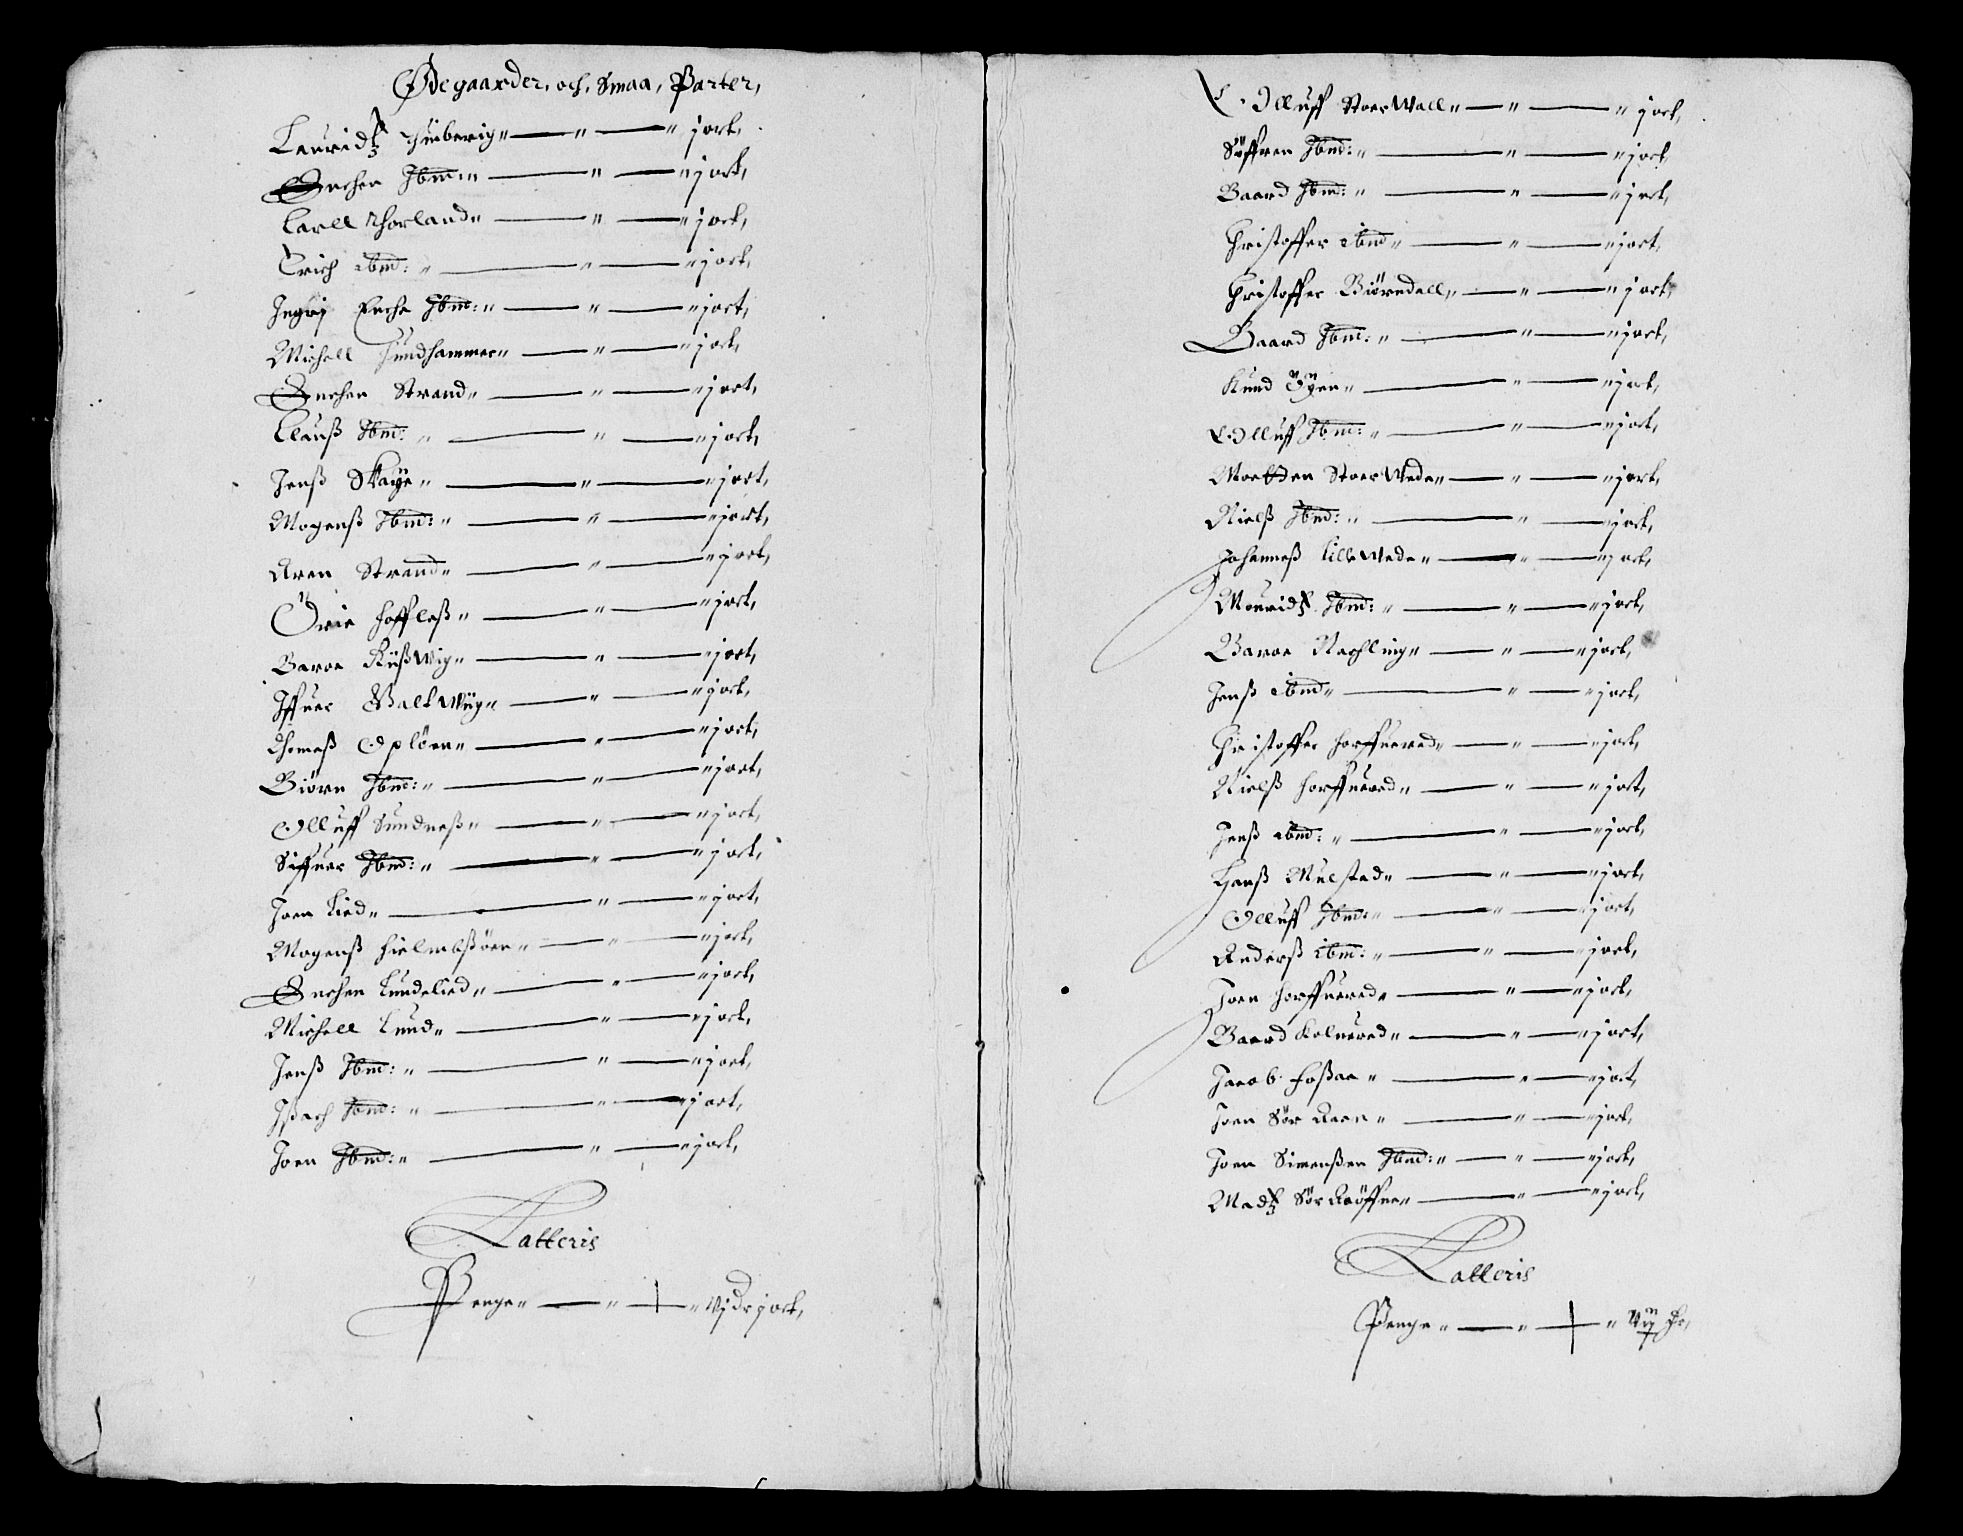 Ødegaarder, och, Smaa, Parter,
Lauridz Huiberig — " — " j ort,
Enchen Ibm: — " — " j ort,
Carll Thorland — " — " j ort,
Erich ibm: — " — " j ort,
Ingrj Enche Ibm: — " — " j ort,
Michell Hundhammer — " — " j ort,
Enchen Strand — " — " j ort,
Clauß Ibm: — " — " j ort,
Jenß Skaye — " — " j ort,
Mogenß Ibm: — " — " j ort,
Aren Strand — " — " j ort,
Orie Hoffleß — " — " j ort,
Baroe Küßwig — " — " j ort,
Iffuer Walkwijg — " — " j ort,
Thomeß Oplöen — " — " j ort,
Biörn Ibm: — " — " j ort,
Olluff Sundneß — " — " j ort,
Siffuer Ibm: — " — " j ort,
Joen Lied — " — " j ort,
Mogenß Hielmbßöen — " — " j ort,
Enchen Lundelied — " — " j ort,
Michell Lund — " — " j ort,
Jenß Ibm: — " — " j ort,
Ißach Ibm: — " — " j ort,
Joen Ibm: — " — " j ort,
Latteris
Penge — " — " vj dr j ort,
Olluff Stoer Wall — " — " j ort,
Söffren Ibm: — " — " j ort,
Baard Ibm: — " — " j ort,
Christoffer ibm — " — " j ort,
Christoffer Biörndall — " — " j ort,
Baard Ibm: — " — " j ort,
Knud Öyen — " — " j ort,
Olluff Ibm: — " — " j ort,
Mortten Stoer Wede — " — " j ort,
Nielß Ibm: — " — " j ort,
Johanneß Lille Wede — " — " j ort,
Mouridz Ibm: — " — " j ort,
Baroe Rechling — " — " j ort,
Jenß ibm — " — " j ort,
Christoffer Horffuered — " — " j ort,
Nielß Horffuered — " — " j ort,
Jenß ibm: — " — " j ort,
Hanß Mulsted — " — " j ort,
Olluff Ibm: — " — " j ort,
Anderß ibm: — " — " j ort,
Joen Horffuered — " — " j ort,
Baard Koluered — " — " j ort,
Jacob Foßaa — " — " j ort,
Joen Sör Aaen — " — " j ort,
Joen Simenßen Ibm: — " — " j ort,
Madz Sör — " — " j ort,
Latteris
Penge — " — "